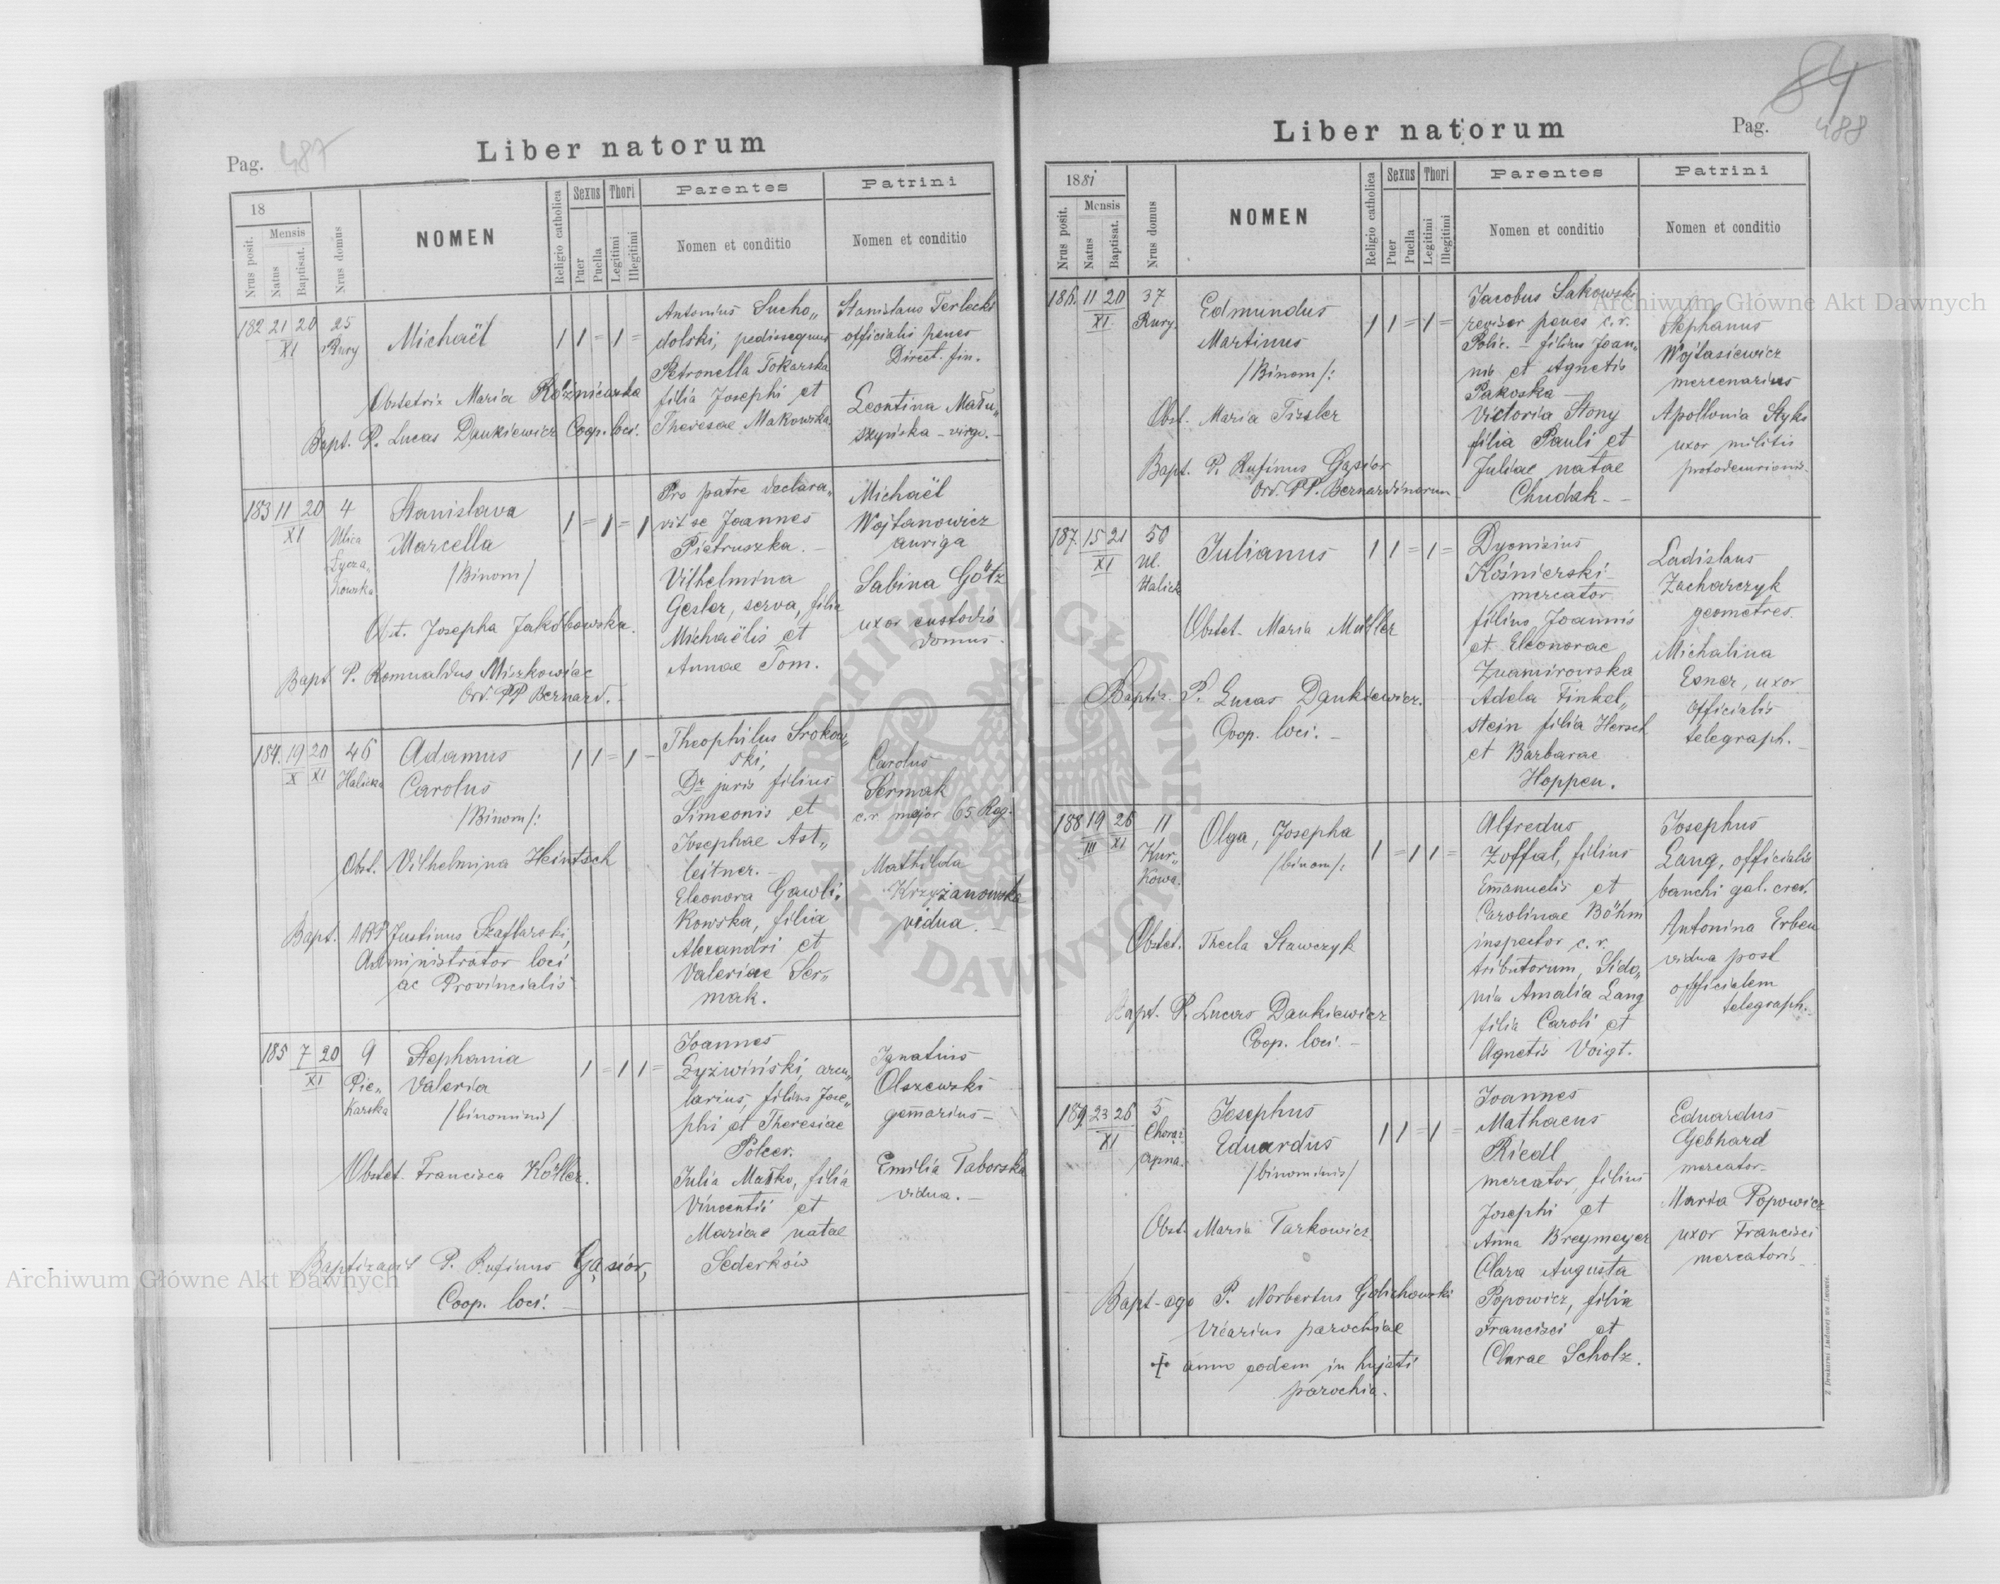 Pag. 487
Liber natorum
18
Nrus posit.
Mensis
Natus
Baptisat.
Nrus domus
NOMEN
Religio catholica
Sexus
Puer
Puella
Thori
Legitimi
Illegitimi
Parentes
Nomen et conditio
Patrini
Nomen et conditio
182 21 20 25
XI Rury
Michaël
1 1 = 1 =
Antonius Sucho„
dolski, pedissequus
Petronella Tokarska
filia Josephi et
Theresae Makowska
Stanislaus Terlecki
officialis penes
Direct. fin.
Leontina Mału„
szyńska - virgo. -
Obstetrix Maria Rożnicawska
Bapt. P. Lucas Dankiewicz Coop. loci.
183 11 20 4
XI Ulica
Łycza„
kowska
Stanislava
Marcella
/Binom/
1 = 1 = 1
Pro patre declara„
vit se Joannes
Pietruszka. -
Vilhelmina
Gesler, serva, filia
Michaëlis et
Annae Tom.
Michaël
Wojtanowicz
auriga
Sabina Götz
uxor custodis
domus.
Obst. Josepha Jakóbowska.
Bapt. P. Romualdus Mirkowicz
Ord. PP Bernard. -
184. 19 20 46
X XI Halicka
Adamus
Carolus
/Binom/:
1 1 = 1 -
Theophilus Srokow„
ski,
Dr juris filius
Simeonis et
Josephae Ast„
leitner. -
Eleonora Gawli„
kowska, filia
Alexandri et
Valeriae Ser„
mak.
Carolus
Sermak
c.r. major 65 Reg.
Mathilda
Krzyżanowska
vidua. -
Obst. Vilhelmina Heintsch
Bapt. ARP Justinus Szaflarski,
Administrator loci
ac Provincialis
185 7 20 9
XI Pie„
karska
Stephania
Valeria
/binominis/
1 = 1 1 =
Joannes
Łyżwiński, arcu„
larius, filius Jose„
phi et Theresiae
Polcer.
Julia Matko, filia
Vincentii et
Mariae natae
Sederków
Ignatius
Olszewski
gemarius -
Emilia Taborska
vidua. -
Obstet. Francisca Köller.
Baptizavit P. Rufinus Gąsior,
Coop. loci. -
84
Pag. 488
Liber natorum
1881
Nrus posit.
Mensis
Natus
Baptisat.
Nrus domus
NOMEN
Religio catholica
Sexus
Puer
Puella
Thori
Legitimi
Illegitimi
Parentes
Nomen et conditio
Patrini
Nomen et conditio
186. 11 20 37
XI. Rury.
Edmundus
Martinus
/Binom/:
1 1 = 1 =
Jacobus Sakowski
revisor penes c.r.
Polic. - filius Joan„
nis et Agnetis
Pakoska -
Victoria Stony
filia Pauli et
Juliae natae
Chudak. -
Stephanus
Wojtasiewicz
mercenarius
Apollonia Styks
uxor militis
protodecurionis -
Obst. Maria Tissler
Bapt. P. Rufinus Gąsior
Ord. PP. Bernardinorum -
187. 15 21 50
XI ul.
Halick
Julianus
1 1 = 1 =
Dyonisius
Kośnierski -
mercator
filius Joannis
et Eleonorae
Znamirowska
Adela Finkel„
stein filia Hersch
et Barbarae
Hoppen.
Ladislaus
Zacharczyk
geometres.
Michalina
Esner, uxor
officialis
telegraph. -
Obstet. Maria Müller
Baptis. P. Lucas Dankiewicz.
Coop. loci. -
188 19 26 11
III XI Kur„
kowa.
Olga, Josepha
/binom/:
1 = 1 1 =
Alfredus
Zoffal, filius
Emanuelis et
Carolinae Böhm
inspector c.r.
tributorum, Sido„
nia Amalia Lang
filia Caroli et
Agnetis Voigt.
Josephus
Lang, officialis
banchi gal. cred.
Antonina Erben
vidua post
officialem
telegraph. -
Obstet. Thecla Stawczyk
Bapt. P. Lucas Dankiewicz
Coop. loci. -
189. 23 26 5
XI Chorąż
czyzna.
Josephus
Eduardus
/binominis/
1 1 = 1 =
Joannes
Mathaeus
Riedl
mercator, filius
Josephi et
Anna Breymeyer
Clara Augusta
Popowicz, filia
Francisci et
Clarae Scholz.
Eduardus
Gebhard
mercator -
Maria Popowicz
uxor Francisci
mercatoris -
Obst. Maria Tarkowicz
Bapt - ego P. Norbertus Golichowski
Vicarius parochiae
+ anno eodem in hujati
parochia.
Z Drukarni Ludowej we Lwowie.
Archiwum Główne Akt Dawnych
Archiwum Główne Akt Dawnych
ARCHIWUM GŁÓWNE AKT DAWNYCH